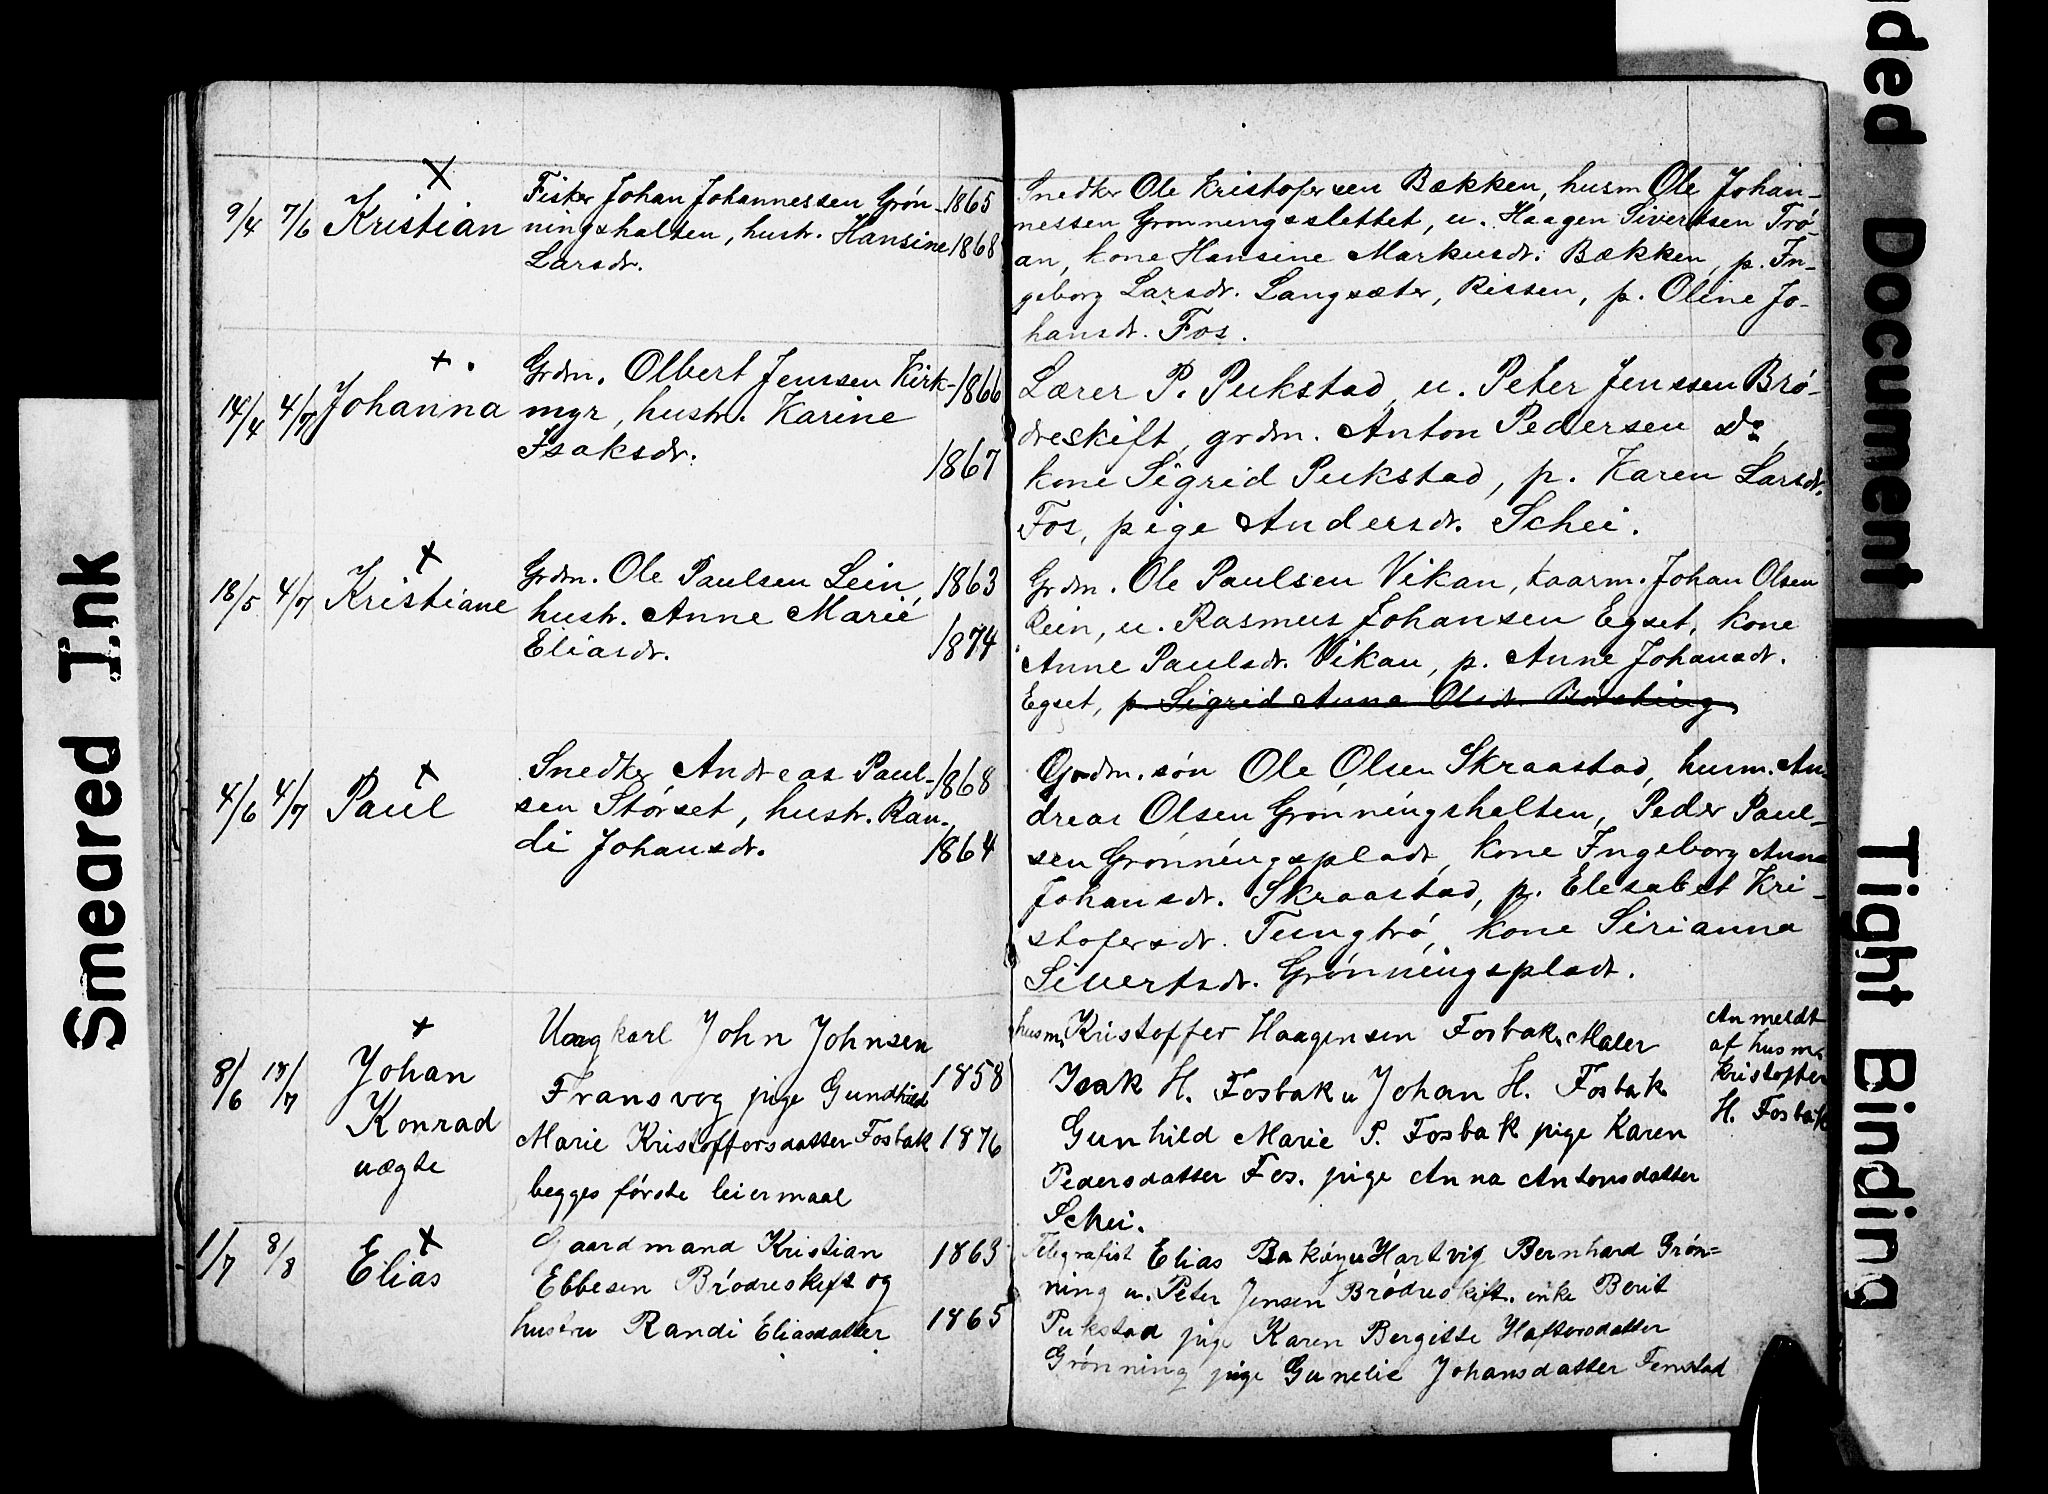 9/4 7/6 Kristian
Fisker Johan Johannessen Grøn- 1865
ningshalten, hustr. Hansine 1868
Larsdr.
Snedker Ole Kristofersen Bækken, husm Ole Johan-
nessen Grønningsslettet, u. Haagen Sivertsen Trø-
an, kone Hansine Markusdr. Bækken, p. In-
geborg Larsdr. Langsæter, Rissen, p. Oline Jo-
hansdr. Fos.
14/4 4/7 Johanna
Grdm. Olbert Jenssen Kirk- 1866
myr, hustr. Karine
Isaksdr. 1867
Lærer P. Pukstad, u. Peter Jenssen Brø-
dreskift, grdm. Anton Pedersen do,
kone Sigrid Pukstad, p. Karen Larsdr.
Fos, pige Andersdr. Schei.
18/5 4/7 Kristiane
Grdm. Ole Paulsen Lein, 1863
hustr. Anne Marie
Eliasdr. 1874
Grdm. Ole Paulsen Vikan, kaarm. Johan Olsen
Rein, u. Rasmus Johansen Egset, kone
Anne Paulsdr. Vikan, p. Anne Johansdr.
Egset, p. Sigrid Anna Olsdr.
4/6 4/7 Paul
Snedker Andreas Paul- 1868
sen Størset, hustr. Ran-
di Johansdr. 1864
Grdm. søn Ole Olsen Skraastad, husm. An-
dreas Olsen Grønningshalten, Peder Paul-
sen Grønningsplads, kone Ingeborg Anna
Johansdr. Skraastad, p. Elesabet Kri-
stofersdr. Tungtrø, kone Sirianna
Sivertsdr. Grønningsplads.
8/6 18/7 Johan
Konrad
uægte
Ungkarl John Johnsen
Fransvog pige Gundhild 1858
Marie Kristoffersdatter Fosbak 1876
begges første leiermaal
husm. Kristoffer Haagensen Fosbak. Maler
Isak H. Fosbak u Johan H. Fosbak
Gunhild Marie P. Fosbak pige Karen
Pedersdatter Fos. pige Anna Antonsdatter
Schei.
Anmeldt
af husm.
Kristoffer
H. Fosbak
1/7 8/8 Elias
Gaardmand Kristian 1863
Ebbesen Brødreskift og
hustru Randi Eliasdatter 1865
Telegrafist Elias Hartvig Bernhard Grøn=
ning u. Peter Jensen Brødreskift. enke Berit
Pukstad pige Karen Bergitte Haftorsdatter
Grønning pige Gunelie Johansdatter Fenstad
Smeared Ink
nded Document
Tight Binding